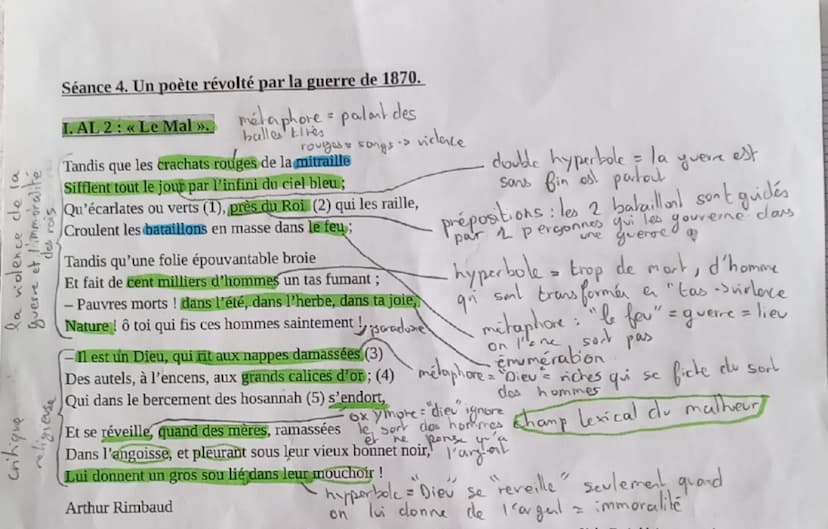 Séance 4. Un poète révolté par la guerre de 1870.
métaphore = palant des
balles tirés
rouges = songs -> violence
I. AL 2 : « Le Mal ».
Tandis que les crachats rouges de la mitraille
Sifflent tout le jour par l'infini du ciel bleu ;
Qu'écarlates ou verts (1), près du Roi (2) qui les raille,
Croulent les bataillons en masse dans le feu ;
Tandis qu'une folie épouvantable broie
Et fait de cent milliers d'hommes un tas fumant ;
– Pauvres morts ! dans l'été, dans l'herbe, dans ta joie,
Nature ! ô toi qui fis ces hommes saintement !
paradoxe
– Il est un Dieu, qui rit aux nappes damassées (3)
Des autels, à l'encens, aux grands calices d'or ; (4)
Qui dans le bercement des hosannah (5) s'endort,
Et se réveille, quand des mères, ramassées
Dans l'angoisse, et pleurant sous leur vieux bonnet noir,
Lui donnent un gros sou lié dans leur mouchoir !
Arthur Rimbaud
la violence de la
guerre et l'immoralité
des rois
critique
religieuse
double hyperbole = la guerre est
sans fin est partout
prépositions : les 2 bataillont sont guidés
par 2 personnes qui les gouverne dans
une guerre
hyperbole = trop de mort, d'homme
qui sont transformés en "tas -> violence
métaphore : "le feu" = guerre = lieu
on l'one sort pas
énumération
métaphore = "Dieu" = riches qui se fiche du sort
des hommes
oxymore = "dieu" ignore
le sort des hommes
et ne pense qu'à
l'argent
champ lexical du malheur
hyperbole = "Dieu" se "reveille" seulement quand
on lui donne de l'argent = immoralité